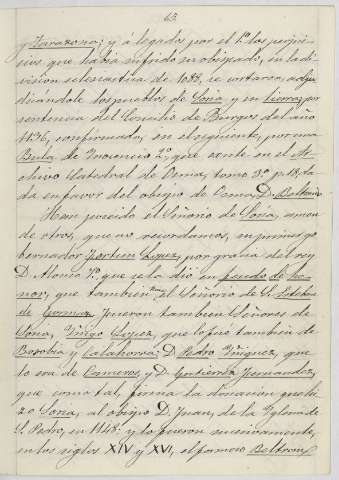 63.
y Tarazona; y á legados por el 1º los perjui-
cios que había sufrido su obispado, en la di-
visión eclesiástica de 1088, se cortaron adju-
dicándole los pueblos de Soria, y en tierras por
sentencia del Concilio de Burgos del año
1136, confirmada, en el siguiente, por una
Bula de Inocencio 2º, que existe en el Ar-
chivo Catedral de Osma, tomo 3º p. 18, da-
da en favor del obispo de Osma, D. Beltran.
Han poseido el Señorío de Soria, amen
de otros, que no recordamos, su primer go-
bernador Fortun Lopez, por gracia del rey
D. Alonso 1º, que se la dió en feudo de ho-
nor, que también el Señorío de S. Esteban
de Gormaz. Fueron también Señores de
Soria, Iñigo Lopez, que lo fué también de
Borobia y Calahorra; D. Pedro Iñiguez, que
lo era de Cameros, y D. Gutierre Fernandez,
que como tal, firma la donación que hi-
zo Soria, al obispo D. Juan, de la Iglesia de
S. Pedro, en 1148: y lo fueron sucesivamente,
en los siglos XIV y XVI, el famoso Beltran